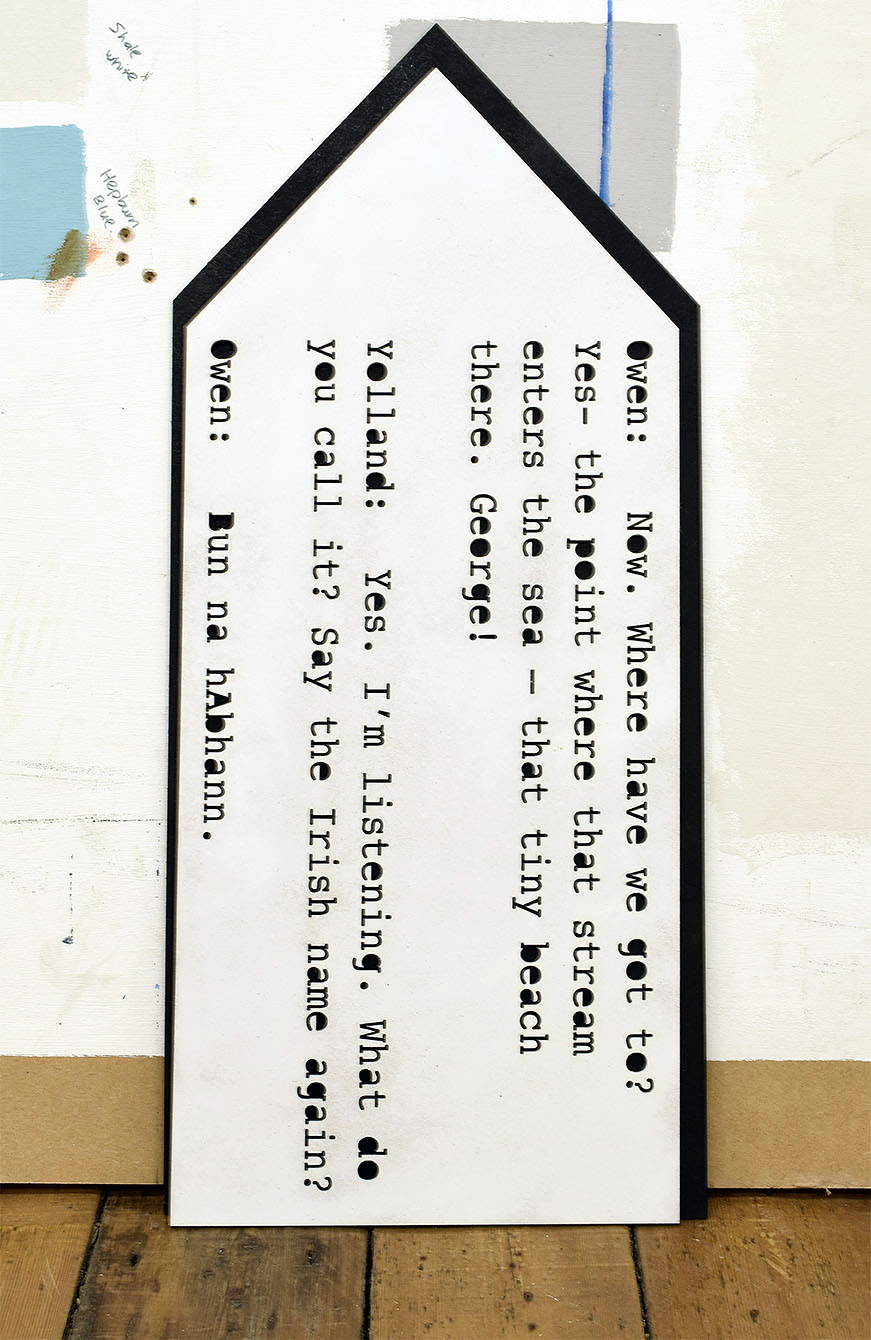 Shale
white
Hepburn
Blue.
Owen: Now. Where have we got to?
Yes- the point where that stream
enters the sea -- that tiny beach
there. George!
Yolland: Yes. I'm listening. What do
you call it? Say the Irish name again?
Owen: Bun na hAbhann.